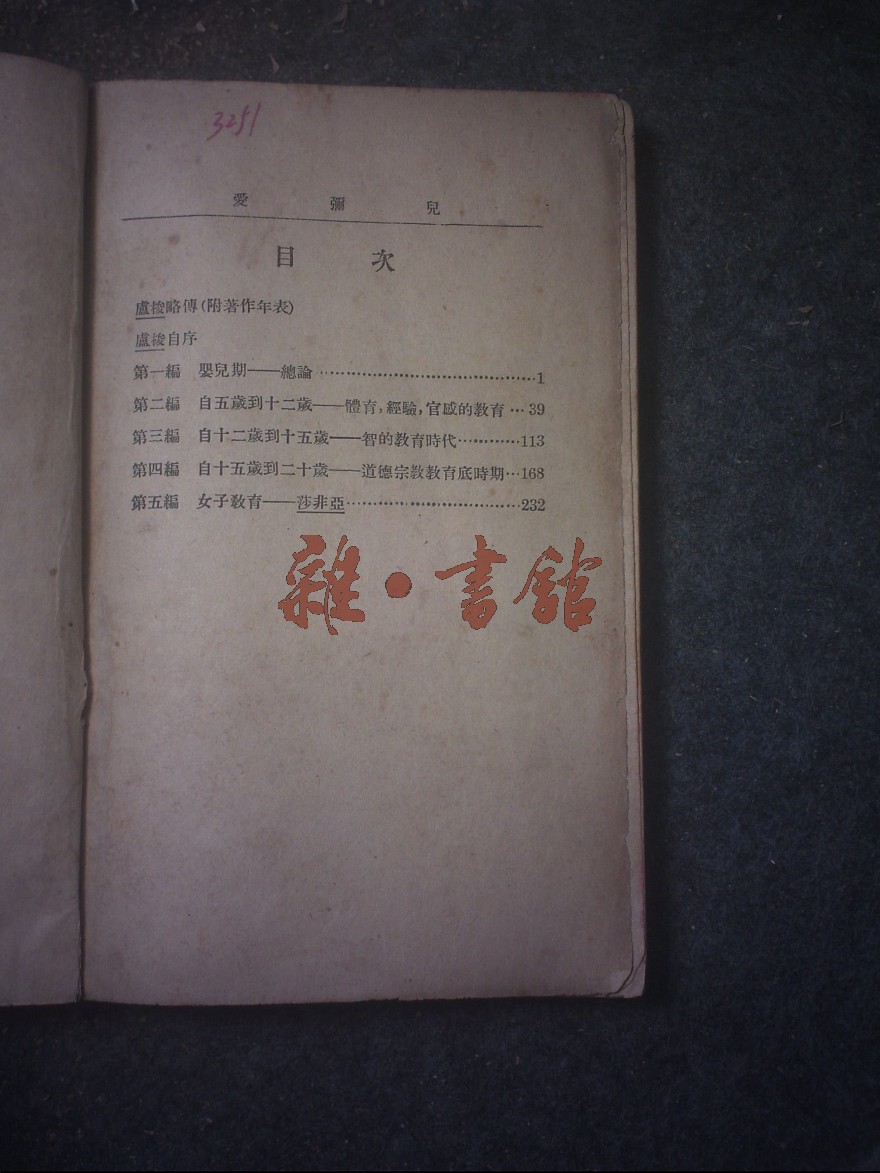 3251
愛彌兒
目次
盧梭略傳(附著作年表)
盧梭自序
第一編 嬰兒期——總論……………………………………1
第二編 自五歲到十二歲——體育,經驗,官感的教育…39
第三編 自十二歲到十五歲——智的教育時代…………113
第四編 自十五歲到二十歲——道德宗教教育底時期…168
第五編 女子教育——莎非亞……………………………232
雜·書館